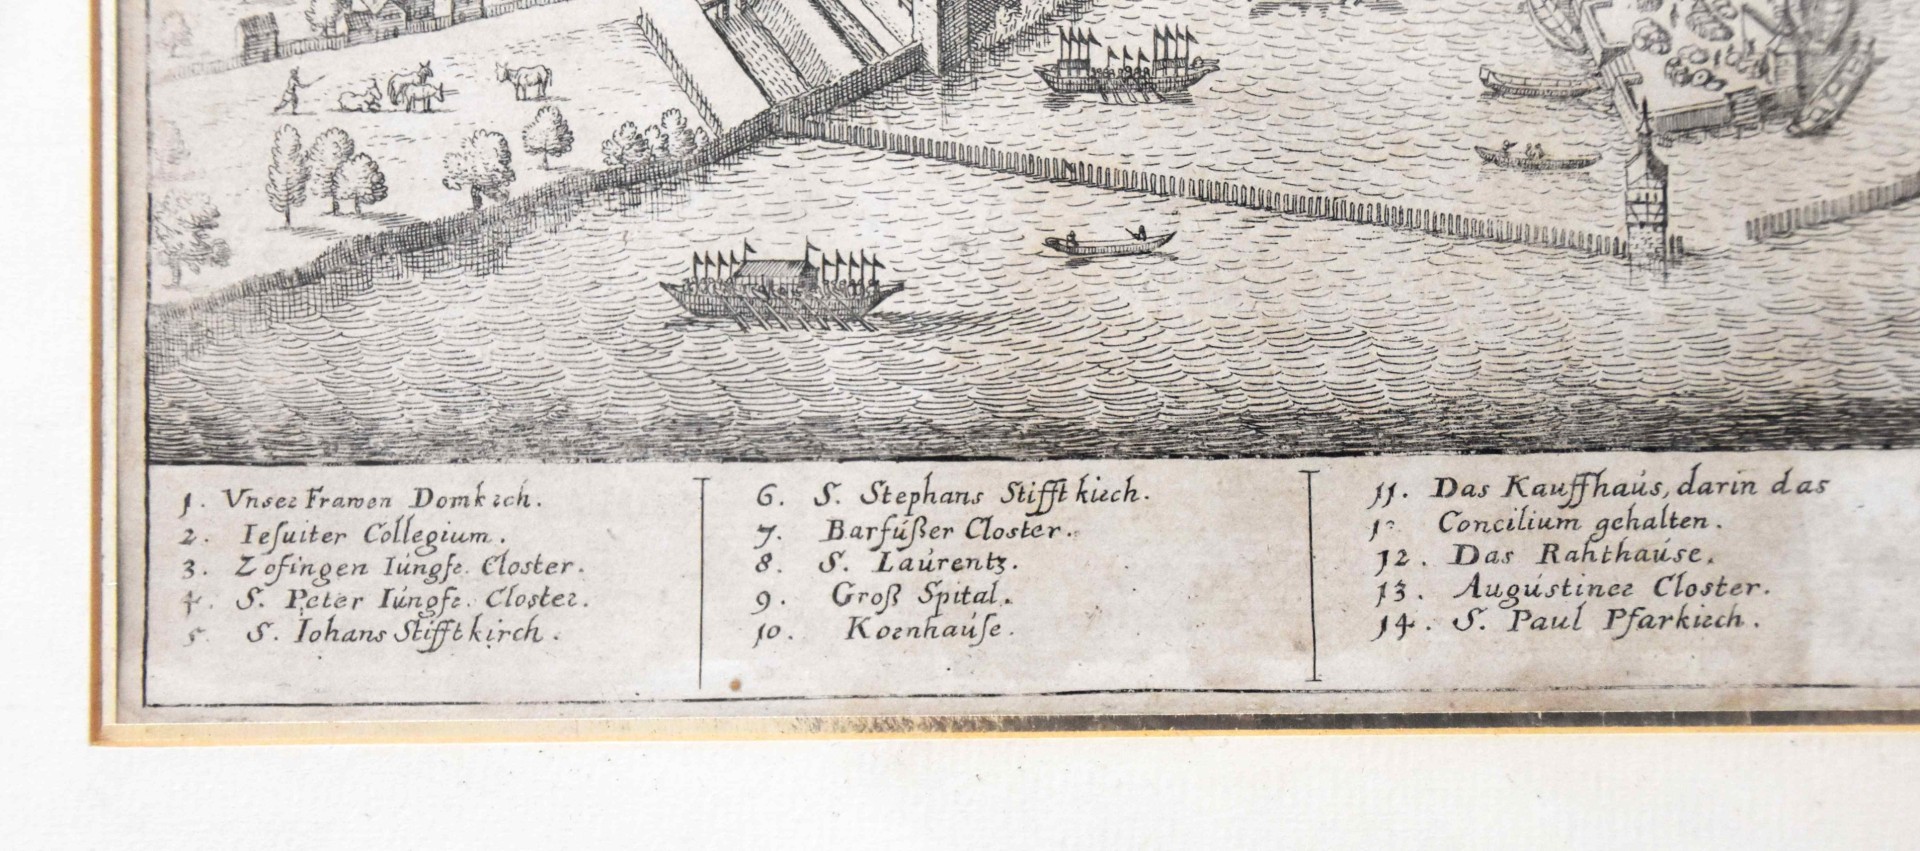 1. Vnser Frawen Domkrch.
2. Iesuiter Collegium.
3. Zofingen Iúngfr. Closter.
4. S. Peter Iúngfr. Closter.
5. S. Iohans Stifftkirch.
6. S. Stephans Stifft kirch.
7. Barfúßer Closter.
8. S. Laúrentz.
9. Groß Spital.
10. Kornhaúse.
11. Das Kauffhaús, darin das
Concilium gehalten.
12. Das Rahthaúse.
13. Augústiner Closter.
14. S. Paul Pfarkirch.